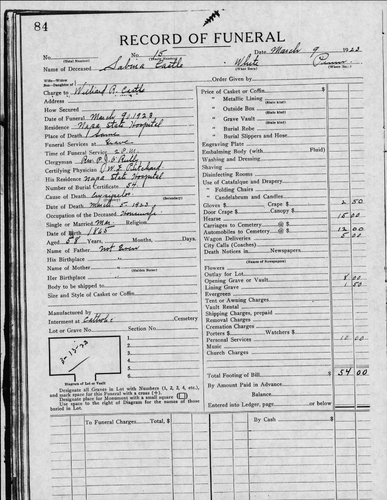 84
RECORD OF FUNERAL
No. No. 15 Date, March 9 1923
(Total Number) (Yearly Number)
Name of Deceased Sabina Castle White
(What Race) (Where Born)
Wife—Widow
Son—Daughter of
Charge to Willard R. Castle
Address
How Secured
Date of Funeral March 9, 1923
Residence Napa State Hospital
Place of Death Same
Funeral Services at Grave
Time of Funeral Service 2 P.M.
Clergyman Rev. P. J.
Certifying Physician W. E. Pritchard
His Residence Napa State Hospital
Number of Burial Certificate 54
Cause of Death
Date of Death March 5, 1923
Occupation of the Deceased Housewife
Single or Married Mar Religion
Date of Birth 1865
Aged 58 Years, Months, Days.
Name of Father Not Given
His Birthplace "
Name of Mother "
(Maiden Name)
Her Birthplace "
Body to be shipped to
Size and Style of Casket or Coffin
Manufactured by
Interment at Catholic Cemetery
Lot or Grave No. Section No.
1.
2.
3.
4.
5.
6.
Diagram of Lot or Vault
Designate all Graves in Lot with Numbers (1, 2, 3, 4, etc.), and mark space for this Funeral with a cross (+).
Designate place for Monument with a small square
Use space to the right of Diagram for the names of those buried in Lot.
Order Given by
Price of Casket or Coffin
" Metallic Lining
(State kind)
" Outside Box
(State kind)
" Grave Vault
(State kind)
" Burial Robe
(State kind)
" Burial Slippers and Hose
Engraving Plate
Embalming Body (with Fluid)
Washing and Dressing
Shaving
Disinfecting Rooms
Use of Catafalque and Drapery
" Folding Chairs
" Candelabrum and Candles
Gloves $ Crape $ 2 50
Door Crape $ Canopy $
Hearse 15 00
Carriages to Cemetery @
Automobiles to Cemetery @ 12 00
Wagon Deliveries 5 00
City Calls (Coaches)
Death Notices in Newspapers
(Names of Newspapers)
Flowers
Outlay for Lot
Opening Grave or Vault 8 00
Lining Grave 1 50
Evergreen
Tent or Awning Charges
Vault Rental
Shipping Charges, prepaid
Removal Charges
Cremation Charges
Porters $ Watchers $
Personal Services 10 00
Music
Church Charges
Total Footing of Bill $ 54 00
By Amount Paid in Advance
Balance
Entered into Ledger, page or below
To Funeral Charges Total, $
By Cash $